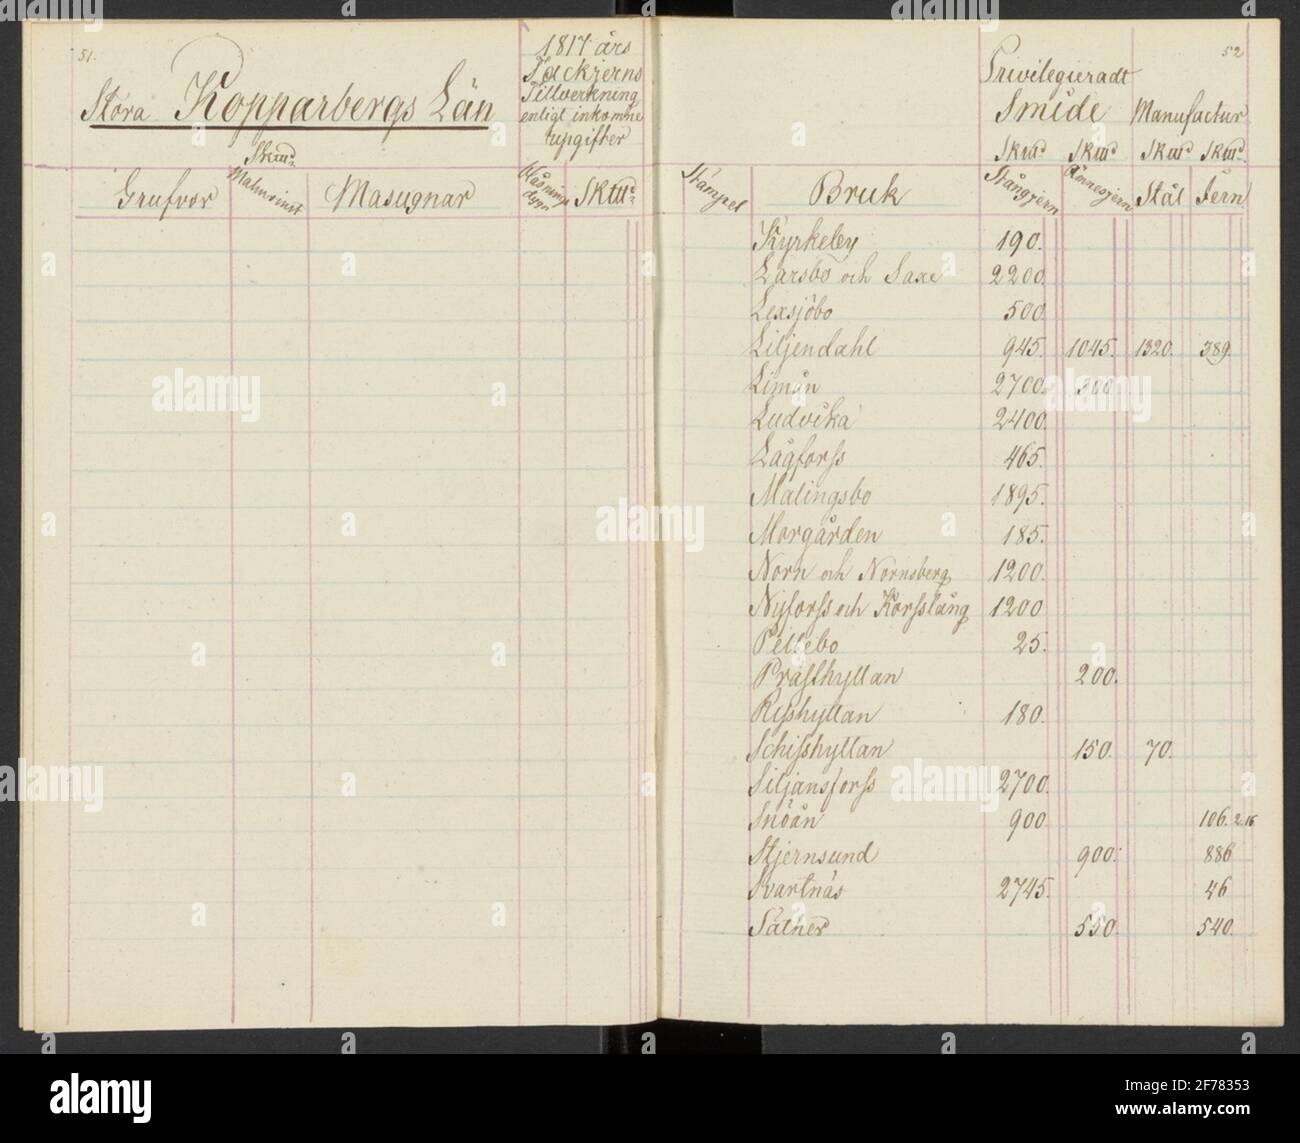 51.
Stora Kopparbergs Län
1817 års
Tackjerns
Tillverkning
enligt inkomne
uppgifter
Skttd
Grufvor Malmvinst Masugnar Blåsnings dygn Skttd
52
Privilegieradt
Smide Manufactur
Skttd Skttd Skttd Skttd
Stämpel Bruk Stångjern Ämnesjern Stål Jern
Kyrkeley 190.
Larsbo och Saxe 2200.
Lexsjöbo 500.
Liljendahl 945. 1045. 1320. 389.
Limån 2700. 300
Ludvika 2400.
Lågforss 465.
Malingsbo 1895.
Morgården 185.
Norn och Nornsberg 1200.
Nyforss och Korsslång 1200
Pellebo 25.
Prästhyllan 200.
Risshyttan 180.
Schisshyttan 150. 70.
Siljansforss 2700.
Snöån 900 106. 2.16
Stjernsund 900. 886
Svartnäs 2745. 46
Säther 550. 540.
alamy
alamy
Image ID: 2F78353
www.alamy.com